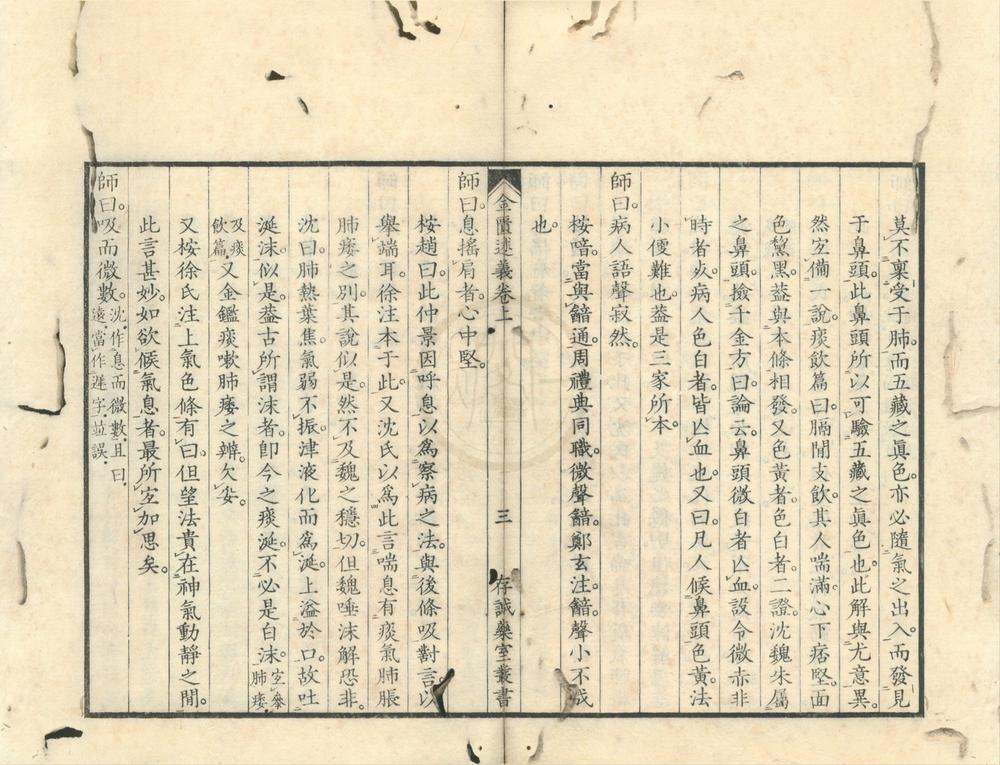 莫不稟受于肺。而五藏之眞色。亦必隨氣之出入。而發見
于鼻頭。此鼻頭所以可驗五藏之眞色也。此解與尤意異。
然宜備一說。痰飲篇曰。膈間支飲。其人喘滿。心下痞堅。面
色黧黑。葢與本條相發。又色黃者。色白者。二證。沈魏朱屬
之鼻頭。撿千金方曰。論云鼻頭微白者亾血。設令微赤非
時者死。病人色白者。皆亾血也。又曰。凡人候鼻頭色黃。法
小便難也。葢是三家所本。
師曰。病人語聲寂然。
桉喑。當與韽通。周禮典同職。微聲韽。鄭玄注。韽。聲小不成
也。
金匱述義卷上
三
存誠藥室叢書
師曰。息搖肩者。心中堅。
桉趙曰。此仲景因呼息以爲察病之法。與後條吸對言。以
舉端耳。徐注本于此。又沈氏以爲此言喘息有痰氣肺脹
肺痿之別。其說似是。然不及魏之穩切。但魏唾沫解恐非。
沈曰。肺熱葉焦。氣弱不振。津液化而爲涎。上溢於口。故吐
涎沫。似是。葢古所謂沫者。卽今之痰涎。不必是白沫。宜參肺痿
及痰飲篇。又金鑑痰嗽肺痿之辨。欠妥。
又桉徐氏注上氣色條。有曰。但望法貴在神氣動靜之閒。
此言甚妙。如欲候氣息者。最所宜加思矣。
師曰。吸而微數。沈。作息而微數。且曰。遠。當作遲字。竝誤。